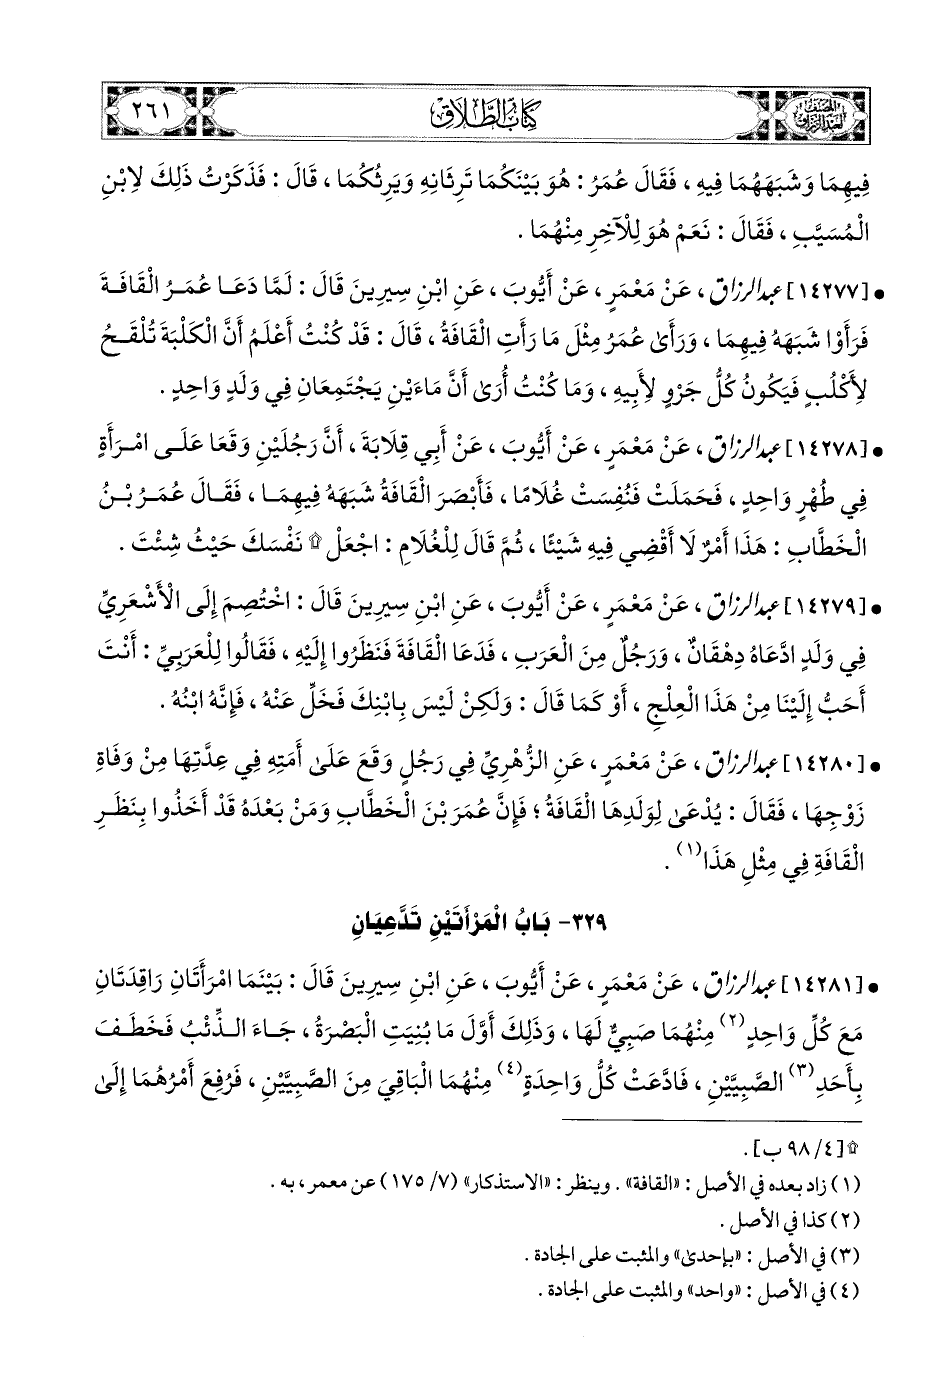 المصنف لعبد الرزاق
كتاب الطلاق
٢٦١
فِيهِمَا وَشَبَهَهُمَا فِيهِ ، فَقَالَ عُمَرُ : هُوَ بَيْنَكُمَا تَرِثَانِهِ وَيَرِثُكُمَا ، قَالَ : فَذَكَرْتُ ذَلِكَ لِابْنِ
الْمُسَيَّبِ ، فَقَالَ : نَعَمْ هُوَ لِلْآخِرِ مِنْهُمَا .
• [١٤٢٧٧] عبد الرزاق ، عَنْ مَعْمَرٍ ، عَنْ أَيُّوبَ ، عَنِ ابْنِ سِيرِينَ قَالَ : لَمَّا دَعَا عُمَرُ الْقَافَةَ
فَرَأَوْا شَبَهَهُ فِيهِمَا ، وَرَأَىٰ عُمَرُ مِثْلَ مَا رَأَتِ الْقَافَةُ ، قَالَ : قَدْ كُنْتُ أَعْلَمُ أَنَّ الْكَلْبَةَ تُلْقَحُ
لِأَكْلُبٍ فَيَكُونُ كُلُّ جَرْوٍ لِأَبِيهِ ، وَمَا كُنْتُ أُرَىٰ أَنَّ مَاءَيْنِ يَجْتَمِعَانِ فِي وَلَدٍ وَاحِدٍ .
• [١٤٢٧٨] عبد الرزاق ، عَنْ مَعْمَرٍ ، عَنْ أَيُّوبَ ، عَنْ أَبِي قِلَابَةَ ، أَنَّ رَجُلَيْنِ وَقَعَا عَلَى امْرَأَةٍ
فِي طُهْرٍ وَاحِدٍ ، فَحَمَلَتْ فَنُفِسَتْ غُلَامًا ، فَأَبْصَرَ الْقَافَةُ شَبَهَهُ فِيهِمَا ، فَقَالَ عُمَرُ بْنُ
الْخَطَّابِ : هَذَا أَمْرٌ لَا أَقْضِي فِيهِ شَيْئًا ، ثُمَّ قَالَ لِلْغُلَامِ : اجْعَلْ ۩ نَفْسَكَ حَيْثُ شِئْتَ .
• [١٤٢٧٩] عبد الرزاق ، عَنْ مَعْمَرٍ ، عَنْ أَيُّوبَ ، عَنِ ابْنِ سِيرِينَ قَالَ : اخْتُصِمَ إِلَى الْأَشْعَرِيِّ
فِي وَلَدٍ ادَّعَاهُ دِهْقَانٌ ، وَرَجُلٌ مِنَ الْعَرَبِ ، فَدَعَا الْقَافَةَ فَنَظَرُوا إِلَيْهِ ، فَقَالُوا لِلْعَرَبِيِّ : أَنْتَ
أَحَبُّ إِلَيْنَا مِنْ هَذَا الْعِلْجِ ، أَوْ كَمَا قَالَ : وَلَكِنْ لَيْسَ بِابْنِكَ فَخَلِّ عَنْهُ ، فَإِنَّهُ ابْنُهُ .
• [١٤٢٨٠] عبد الرزاق ، عَنْ مَعْمَرٍ ، عَنِ الزُّهْرِيِّ فِي رَجُلٍ وَقَعَ عَلَىٰ أَمَتِهِ فِي عِدَّتِهَا مِنْ وَفَاةِ
زَوْجِهَا ، فَقَالَ : يُدْعَىٰ لِوَلَدِهَا الْقَافَةُ ؛ فَإِنَّ عُمَرَ بْنَ الْخَطَّابِ وَمَنْ بَعْدَهُ قَدْ أَخَذُوا بِنَظَرِ
الْقَافَةِ فِي مِثْلِ هَذَا(١) .
٣٢٩- بَابُ الْمَرْأَتَيْنِ تَدَّعِيَانِ
• [١٤٢٨١] عبد الرزاق ، عَنْ مَعْمَرٍ ، عَنْ أَيُّوبَ ، عَنِ ابْنِ سِيرِينَ قَالَ : بَيْنَمَا امْرَأَتَانِ رَاقِدَتَانِ
مَعَ كُلِّ وَاحِدٍ(٢) مِنْهُمَا صَبِيٌّ لَهَا ، وَذَلِكَ أَوَّلَ مَا بُنِيَتِ الْبَصْرَةُ ، جَاءَ الذِّئْبُ فَخَطَفَ
بِأَحَدِ(٣) الصَّبِيَّيْنِ ، فَادَّعَتْ كُلُّ وَاحِدَةٍ(٤) مِنْهُمَا الْبَاقِيَ مِنَ الصَّبِيَّيْنِ ، فَرُفِعَ أَمْرُهُمَا إِلَىٰ
۩ [٤/ ٩٨ ب] .
(١) زاد بعده في الأصل : «القافة» . وينظر : «الاستذكار» (٧/ ١٧٥) عن معمر ، به .
(٢) كذا في الأصل .
(٣) في الأصل : «بإحدىٰ» والمثبت على الجادة .
(٤) في الأصل : «واحد» والمثبت على الجادة .